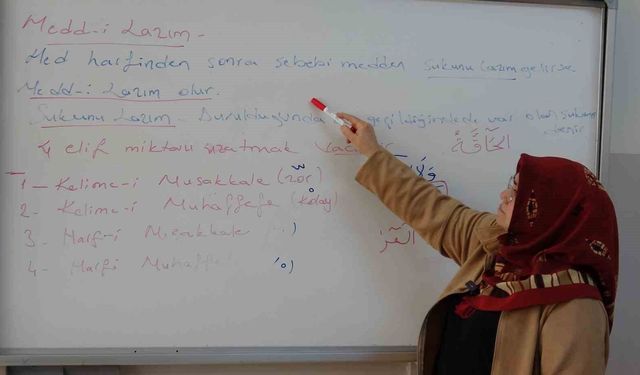 Medd-i Lazım -
Med harfinden sonra sebebi medden sukunu lazım gelirse
Medd-i Lazım olur.
Sukunu Lazım - Durulduğunda geçildiğinde de var olan sukuna denir
4 elif miktarı uzatmak Vacib
الحَآقَّةُ
1 - Kelime-i Musakkale (zor)
2 - Kelime-i Muhaffefe (kolay)
3 - Harf-i Musakkale
4 - Harfi